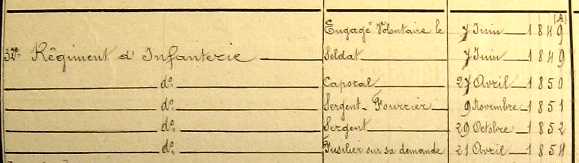 (A)
Engagé Volontaire le 7 Juin 1849
32e Régiment d'Infanterie Soldat 7 Juin 1849
do. Caporal 27 Avril 1850
do. Sergent Fourrier 9 Novembre 1851
do. Sergent 29 Octobre 1852
do. Fusilier sur sa demande 21 Avril 1854